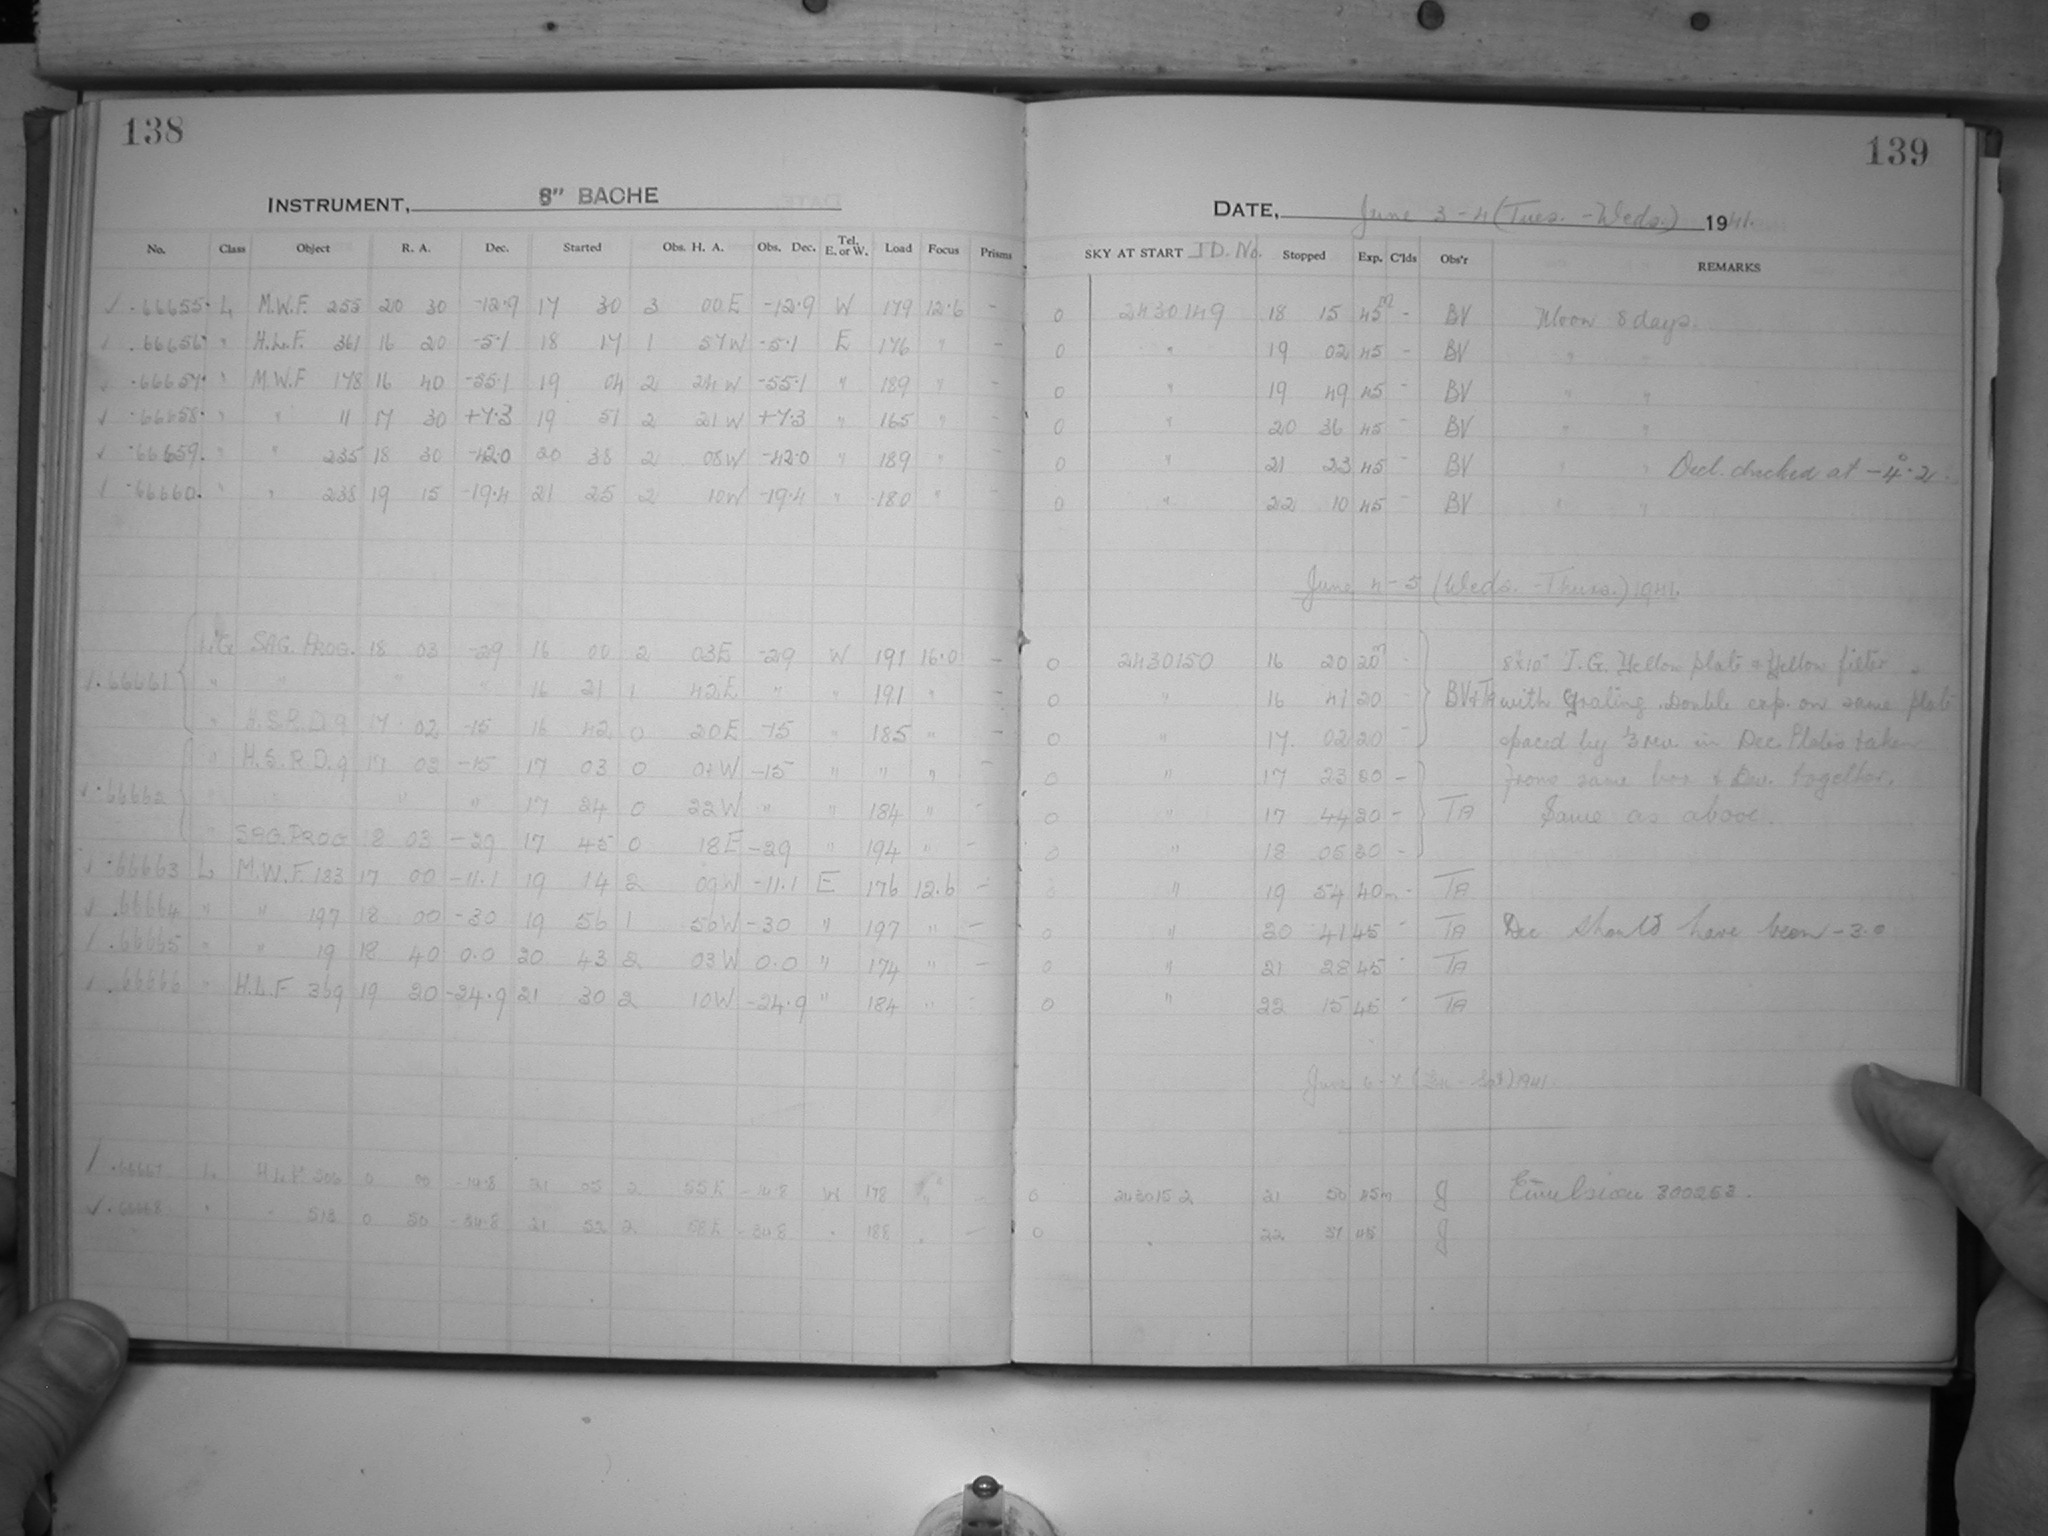 138
139
INSTRUMENT, 8" BACHE
DATE, June 3-4 (Tues. - Weds.) 1941.
No. Class Object R. A. Dec. Started Obs. H. A. Obs. Dec. Tel. E. or W. Load Focus Prisms SKY AT START JD. No. Stopped Exp. C'lds Obs'r REMARKS
✓ .66655. L M.W.F. 255 20 30 -12.9 17 30 3 00E -12.9 W 179 12.6 - 0 2430149 18 15 45m - BV Moon 8 days.
✓ .66656 " H.L.F. 361 16 20 -5.1 18 17 1 57W -5.1 E 176 " - 0 " 19 02 45 - BV " "
✓ .66657. " M.W.F 178 16 40 -55.1 19 04 2 24W -55.1 " 189 " - 0 " 19 49 45 - BV " "
✓ .66658. " " 11 17 30 +7.3 19 51 2 21W +7.3 " 165 " - 0 " 20 36 45 - BV " "
✓ .66659. " " 235 18 30 -42.0 20 38 2 08W -42.0 " 189 " - 0 " 21 23 45 - BV " " Decl. checked at -4°.2.
✓ .66660. " " 238 19 15 -19.4 21 25 2 10W -19.4 " 180 " - 0 " 22 10 45 - BV " "
June 4-5 (Weds. - Thurs.) 1941.
SAG. PROG. 18 03 -29 16 00 2 03E -29 W 191 16.0 - 0 2430150 16 20 20m - 8x10" I.G. Yellow plate & Yellow filter
✓ .66661 " " " " 16 21 1 42E " " 191 " - 0 " 16 41 20 - with Grating. Double exp. on same plate
" H.S.P.D. 9 17 02 -15 16 42 0 20E -15 " 185 " - 0 " 17 02 20 - spaced by in Dec. Plates taken
" H.S.P.D. 9 17 02 -15 17 03 0 01W -15 " " " - 0 " 17 23 20 - from same box & Dev. together.
✓ .66662 " " " 17 24 0 22W " " 184 " - 0 " 17 44 20 - TA Same as above.
" SAG. PROG 18 03 -29 17 45 0 18E -29 " 194 " - 0 " 18 05 20 -
✓ .66663 L M.W.F. 183 17 00 -11.1 19 14 2 09W -11.1 E 176 12.6 - 0 " 19 54 40m - TA
✓ .66664 " " 197 18 00 -30 19 56 1 50W -30 " 197 " - 0 " 20 41 45 - TA Dec should have been -3.0
✓ .66665 " " 19 18 40 0.0 20 43 2 03W 0.0 " 174 " - 0 " 21 28 45 - TA
✓ .66666 " H.L.F 369 19 20 -24.9 21 30 2 10W -24.9 " 184 " - 0 " 22 15 45 - TA
June 6-7 1941.
✓ .66667 L H.L.F 0 00 -14.8 21 05 2 55E -14.8 W 178 - 0 2430152 21 50 45m J Emulsion 300253.
✓ .66668 " " 513 0 50 -34.8 21 52 2 58E -34.8 " 188 - 0 " 22 37 45 J